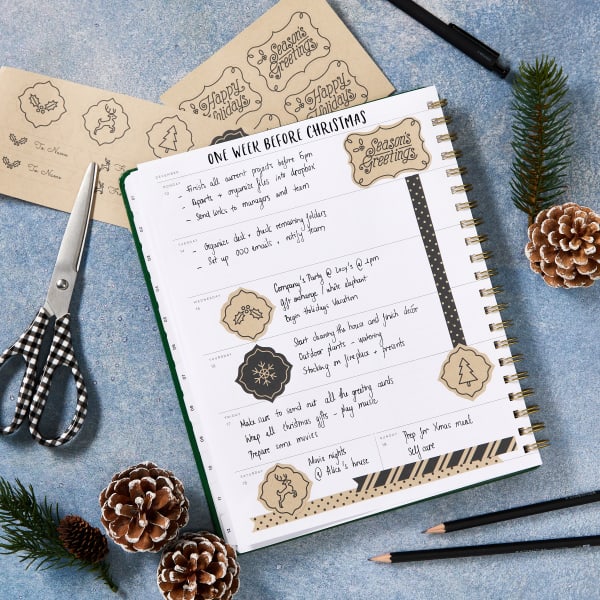 Season's
Greetings
Happy
Holidays
To:
From:
To:
From:
ONE WEEK BEFORE CHRISTMAS
DECEMBER
MONDAY
13
- Finish all current projects before 6pm
- Reports + organize files into dropbox
- Send links to managers and team
Season's
Greetings
14
- Organize desk + check remaining folders
- Set up OOO emails + notify team
WEDNESDAY
15
Company's Party @ Lucy's @ 2pm
Gift exchange / white elephant
Begin Holidays Vacation
THURSDAY
16
Start cleaning the house and finish decor
Outdoor plants - watering
Stocking on fireplace + presents
FRIDAY
17
Make sure to send out all the greeting cards
Wrap all christmas gifts - play music
Prepare some movies
SATURDAY
18
Movie nights
@ Alica's house
SUNDAY
19
Prep for Xmas meal
Self care